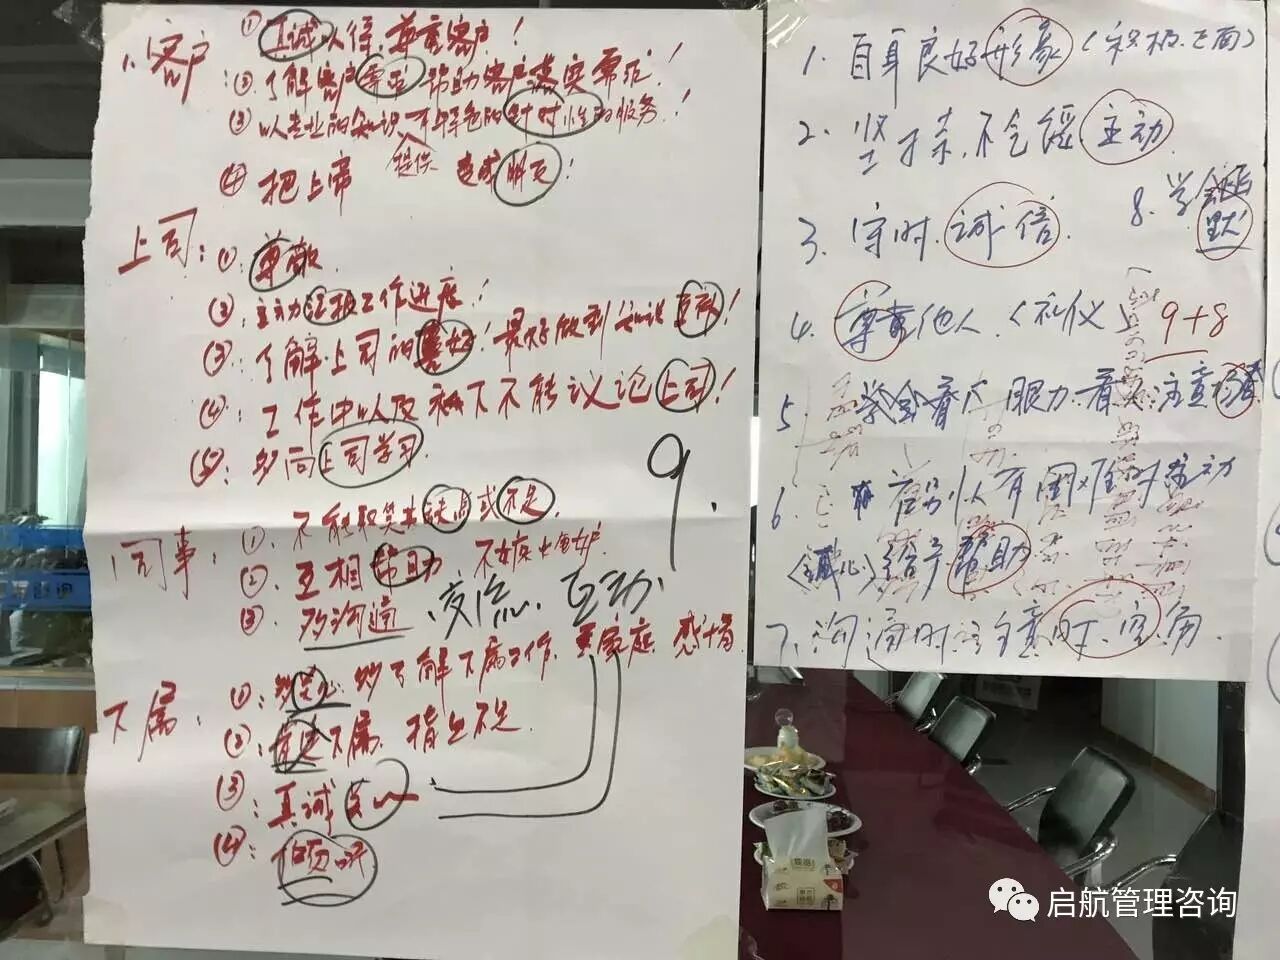 1、客户
① 真诚以待，尊重客户！
② 了解客户需求 帮助客户落实需求！
③ 以专业的知识 提供 针对性的服务！
④ 把上帝 变成朋友！
上司：
①：尊敬
②：主动汇报工作进度！
③：了解上司的喜好！最好做到知识互补！
④：工作中以及私下不能议论上司！
⑤：多向上司学习
同事：
①：不能取笑其缺点或不足
②：互相帮助，不嫉妒
③：多沟通
交流、互动
9.
下属：
①：多关心，多了解下属工作、家庭
②：肯定下属，指出不足
③：真诚
④：倾听
1. 自身良好形象（积极.正面）
2. 坚持.不仓促.主动
3. 守时.诚信.
4. 尊重他人.（礼仪）
5 学会看人 眼力
6 别人有困难时主动
（诚心）给予帮助
7. 沟通时注意时、空、角
8. 学会幽默
9+8
启航管理咨询